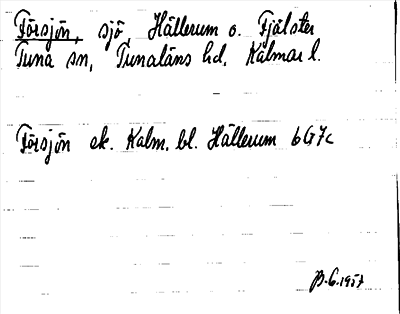 Försjön, sjö Hällerum o. Fjälster
Tuna sn, Tunaläns hd, Kalmar l.
Försjön ek. Kalm. bl. Hällerum 6G7c
B.G.1957